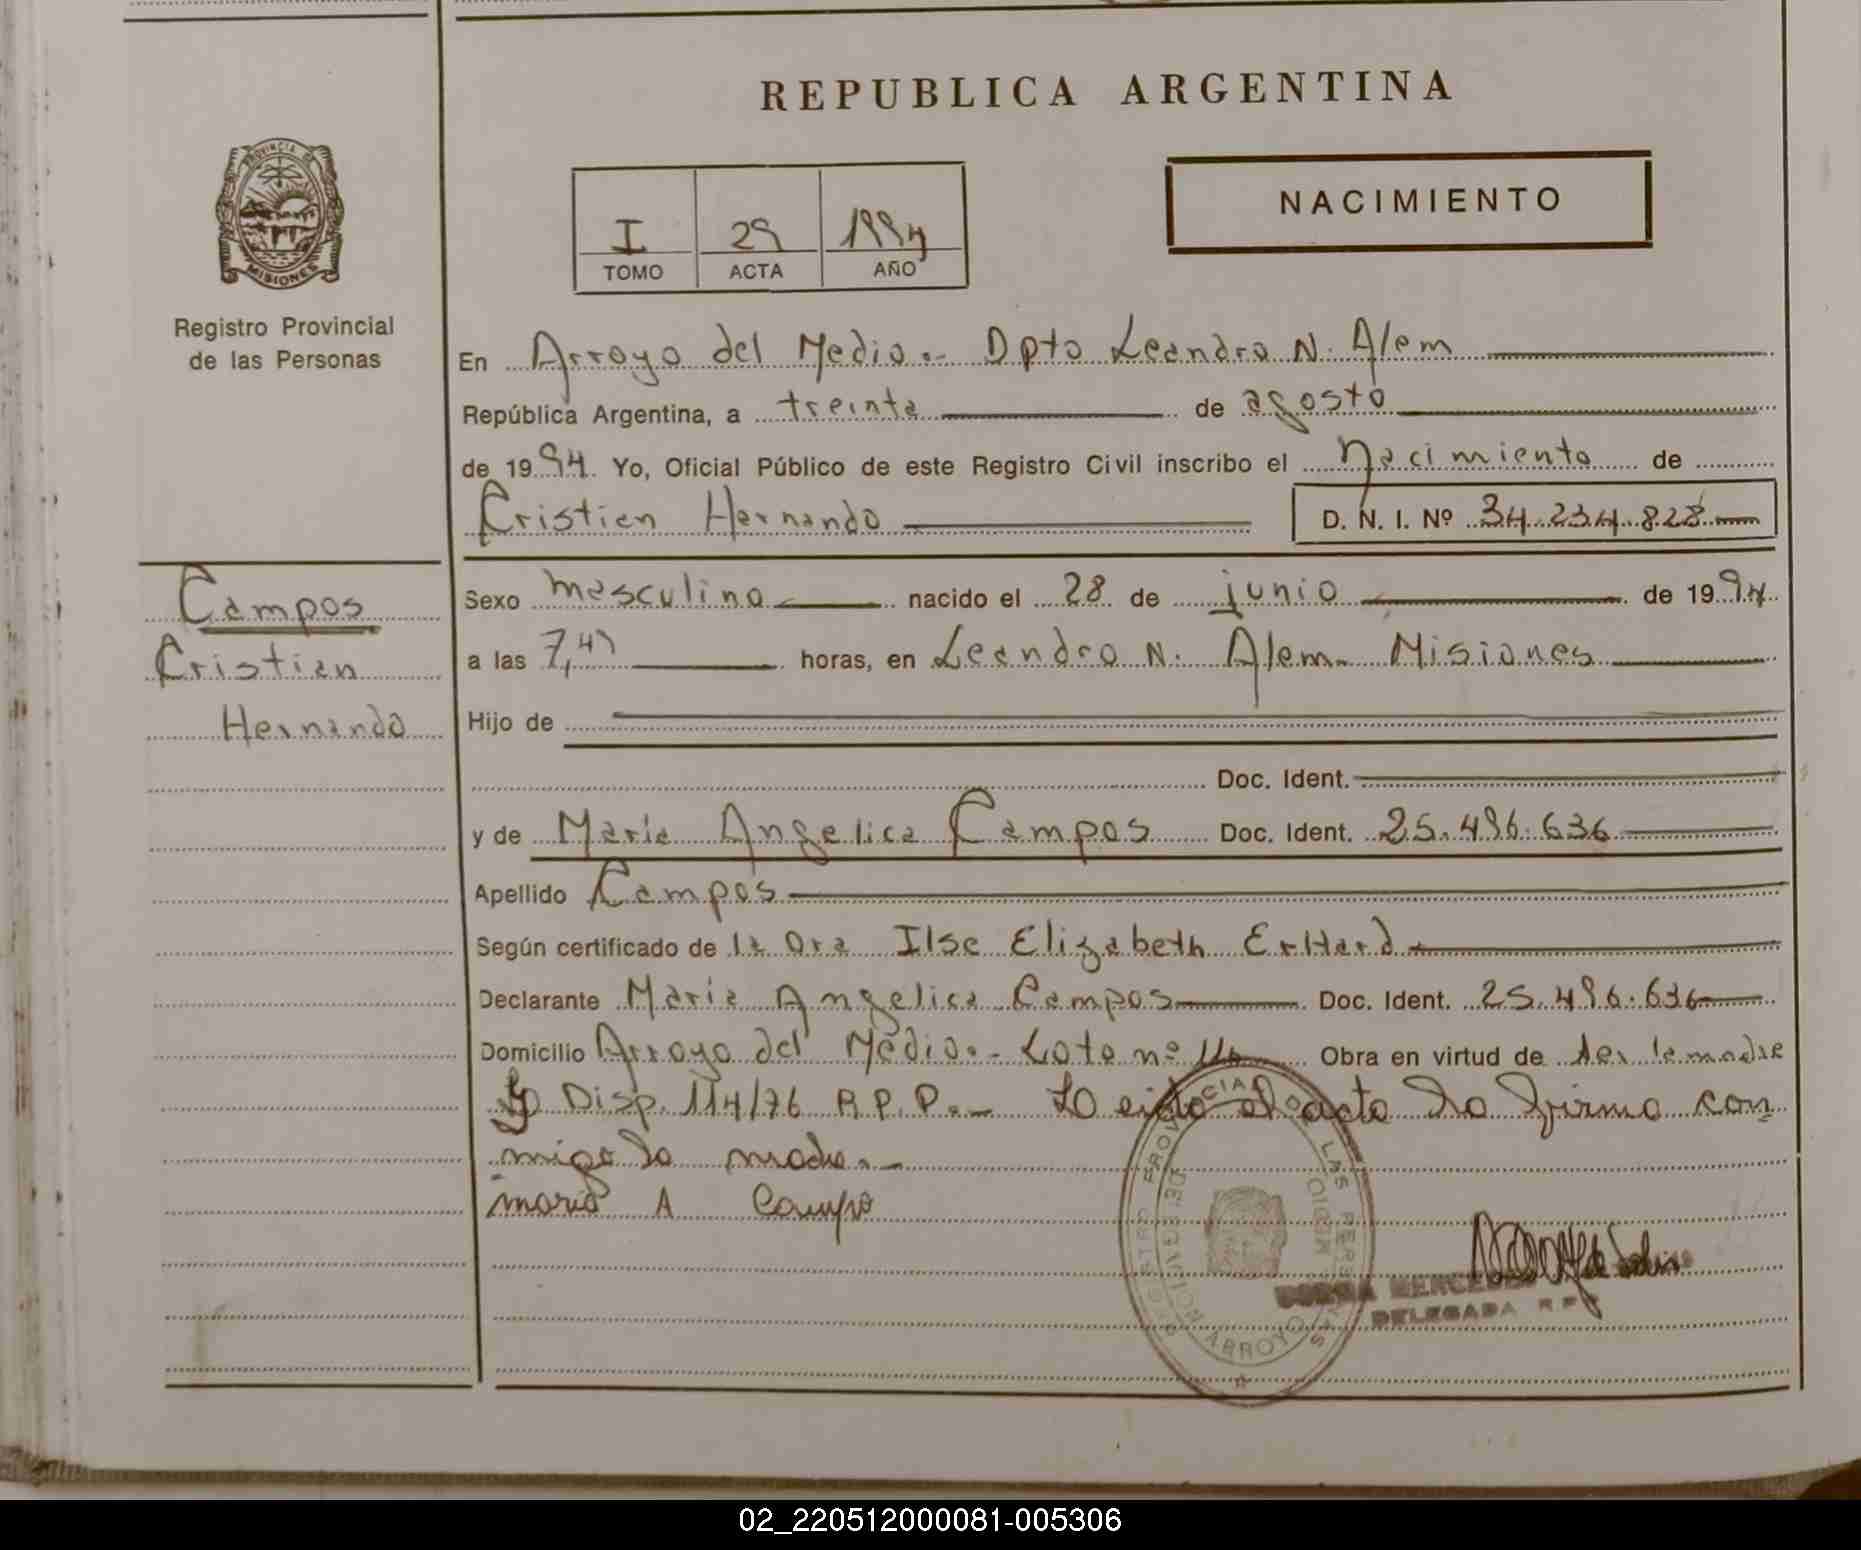 REPUBLICA ARGENTINA
PROVINCIA DE
MISIONES
Registro Provincial
de las Personas
NACIMIENTO
I 29 1994
TOMO ACTA AÑO
En Arroyo del Medio.- Dpto Leandro N. Alem
República Argentina, a treinta de agosto
de 1994. Yo, Oficial Público de este Registro Civil inscribo el Nacimiento de
Cristian Hernando D. N. I. Nº 34.234.828
Campos
Cristian
Hernando
Sexo masculino nacido el 28 de junio de 1994
a las 7,45 horas, en Leandro N. Alem- Misiones
Hijo de
Doc. Ident.
y de Maria Angelica Campos Doc. Ident. 25.496.636
Apellido Campos
Según certificado de la Dra Ilse Elizabeth Erhard
Declarante Maria Angelica Campos Doc. Ident. 25.496.636
Domicilio Arroyo del Medio.- Lote nº Obra en virtud de ser la madre
y Disp. 114/76 R.P.P.- Leido el acta la firma con=
migo la madre.-
maria A Campo
REGISTRO PROVINCIAL DE LAS PERSONAS
DELEGACION ARROYO DEL MEDIO
MERCEDES
DELEGADA R P P
02_220512000081-005306